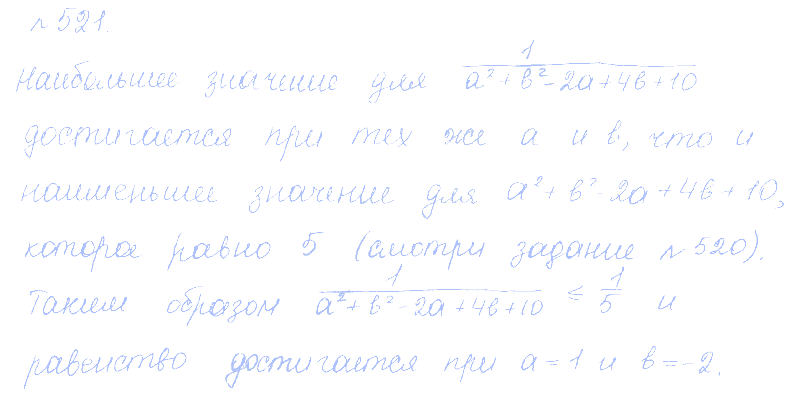 №521.
Наибольшее значение для 1/(a²+b²-2a+4b+10)
достигается при тех же a и b, что и
наименьшее значение для a²+b²-2a+4b+10,
которое равно 5 (смотри задание №520).
Таким образом 1/(a²+b²-2a+4b+10) ≤ 1/5 и
равенство достигается при a=1 и b=-2.